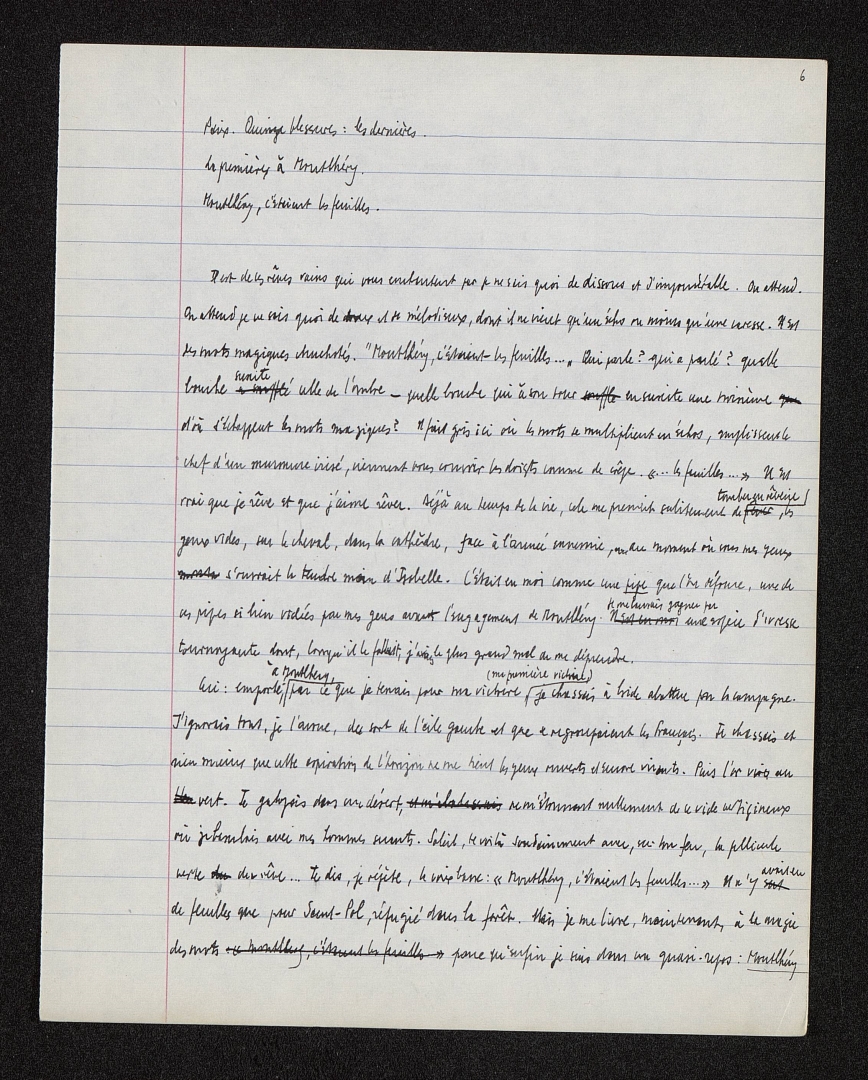 6
Paix. Quinze blessures : les dernières.
La première à Montlhéry.
Montlhéry, c'étaient les feuilles.
Il est de ces rêves vains qui vous enchantent par je ne sais quoi de dissous et d'impondérable. On attend.
On attend je ne sais quoi de doux et de mélodieux, dont il ne vient qu'un écho ou moins qu'une caresse. Il est
des mots magiques chuchotés. "Montlhéry, c'étaient les feuilles..." Qui parle ? qui a parlé ? quelle
suscite
bouche a soufflé celle de l'ombre — quelle bouche qui à son tour souffle en suscite une troisième que
d'où s'échappent les mots magiques ? Il fait gris ici où les mots se multiplient en échos, emplissent le
chef d'un murmure irisé, viennent vous couvrir les doigts comme de crêpe. «... les feuilles...» Il est
tomber en rêverie
vrai que je rêve et que j'aime rêver. Déjà au temps de la vie, cela me prenait subitement de rêver, les
yeux vides, sur le cheval, dans la cathédrale, face à l'armée ennemie, ou au moment où sous mes yeux
s'ouvrait la tendre main d'Isabelle. C'était en moi comme une pipe que l'on défourne, une de
je me laissais gagner par
ces pipes si bien vidées par mes gens avant l'engagement de Montlhéry. C'était en moi une espèce d'ivresse
tournoyante dont, lorsqu'il le fallait, j'avais le plus grand mal de me déprendre.
à Montlhéry, (ma première victoire)
Ainsi : emporté par ce que je tenais pour ma victoire, je chassais à bride abattue par la campagne.
J'ignorais tout, je l'avoue, du sort de l'aile gauche et que se regroupaient les Français. Je chassais et
rien mieux que cette aspiration de l'horizon ne me tient les yeux ouverts et encore vivants. Puis l'or vira au
bleu vert. Je galopais dans un désert, ne m'étonnant nullement de ce vide vertigineux
où je déboulais avec mes hommes suants. Soleil, te voilà soudainement avec, sur ton feu, la pellicule
avait eu
verte du du rêve... Je dis, je répète, la voix basse : « Montlhéry, c'étaient les feuilles...» Il n'y eut
de feuilles que pour Saint-Pol, réfugié dans la forêt. Mais je me livre, maintenant, à la magie
des mots « Montlhéry, c'étaient les feuilles » parce qu'enfin je suis dans un quasi-repos : Montlhéry